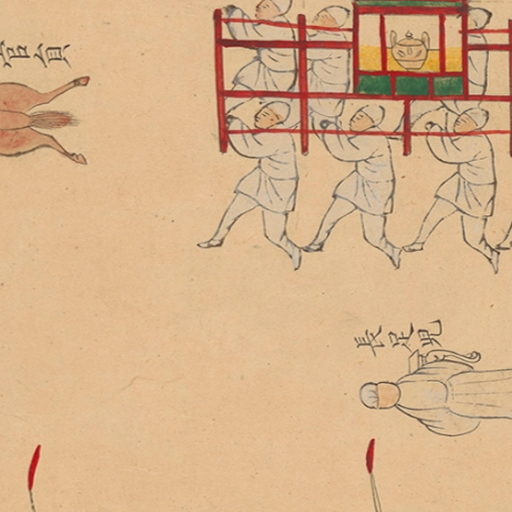 官員
長足兒